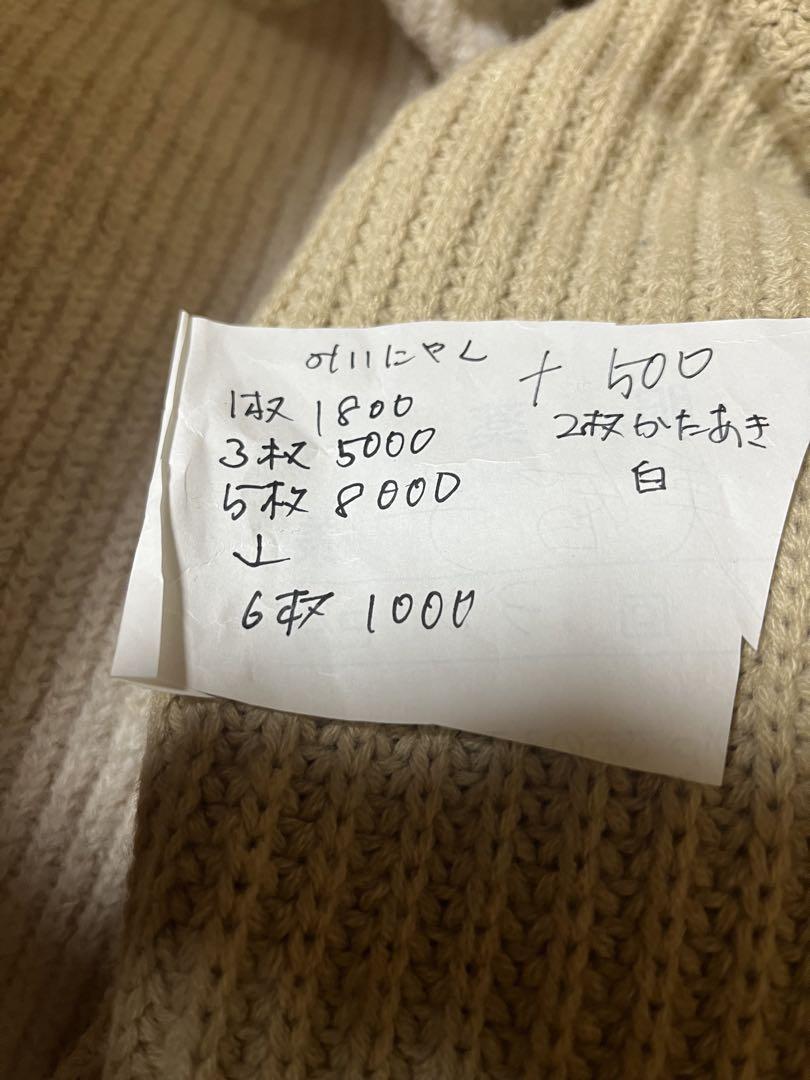 みいにゃん
1枚 1800
3枚 5000
5枚 8000
↓
6枚 1000
+ 500
2枚かたあき
白